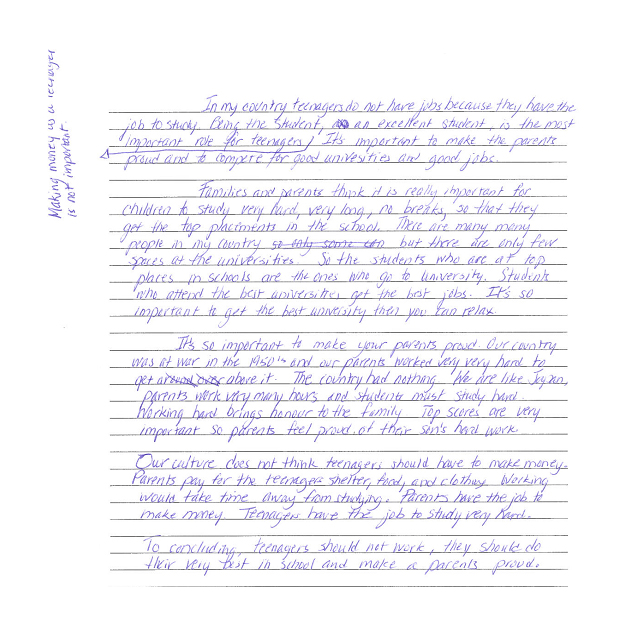 Making money as a teenager
is not important.
In my country teenagers do not have jobs because they have the
job to study. Being the student, an excellent student, is the most
important role for teenagers. It's important to make the parents
proud and to compete for good univesities and good jobs.
Families and parents think it is really important for
children to study very hard, very long, no breaks, so that they
get the top placements in the school. There are many many
people in my country so only some can but there are only few
spaces at the universities. So the students who are at top
places in schools are the ones who go to university. Students
who attend the best universities get the best jobs. It's so
important to get the best university then you can relax.
It's so important to make your parents proud. Our country
was at war in the 1950's and our parents worked very very hard to
get around over above it. The country had nothing. We are like
parents work very many hours and students must study hard.
Working hard brings honour to the family. Top scores are very
important so parents feel proud of their son's hard work.
Our culture does not think teenagers should have to make money.
Parents pay for the teenagers shelter, food, and clothing. Working
would take time away from studying. Parents have the job to
make money. Teenagers have the job to study very hard.
To concluding, teenagers should not work, they should do
their very best in school and make a parents proud.